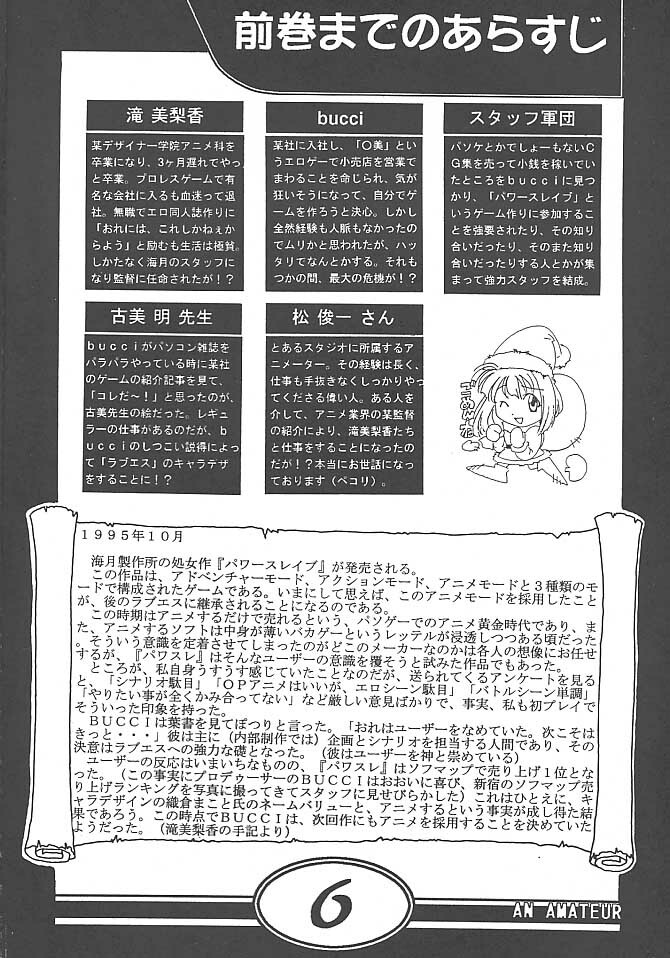 前巻までのあらすじ
滝 美梨香
某デザイナー学院アニメ科を
卒業になり、3ヶ月遅れてやっ
と卒業。プロレスゲームで有
名な会社に入るも血迷って退
社。無職でエロ同人誌作りに
「おれには、これしかねぇか
らよう」と励むも生活は極貧。
しかたなく海月のスタッフに
なり監督に任命されたが!?
bucci
某社に入社し、「O美」とい
うエロゲーで小売店を営業で
まわることを命じられ、気が
狂いそうになって、自分でゲ
ームを作ろうと決心。しかし
全然経験も人脈もなかったの
でムリかと思われたが、ハッ
タリでなんとかする。それも
つかの間、最大の危機が!?
スタッフ軍団
パソケとかでしょーもないC
G集を売って小銭を稼いでい
たところをbucciに見つ
かり、「パワースレイブ」と
いうゲーム作りに参加するこ
とを強要されたり、その知り
合いだったり、そのまた知り
合いだったりする人とかが集
まって強力スタッフを結成。
古美 明 先生
bucciがパソコン雑誌を
パラパラやっている時に某社
のゲームの紹介記事を見て、
「コレだ〜!」と思ったのが、
古美先生の絵だった。レギュ
ラーの仕事があるのだが、b
ucciのしつこい説得によっ
て「ラブエス」のキャラデザ
をすることに!?
松 俊一 さん
とあるスタジオに所属するア
ニメーター。その経験は長く、
仕事も手抜きなくしっかりやっ
てくださる偉い人。ある人を
介して、アニメ業界の某監督
の紹介により、滝美梨香たち
と仕事をすることになったの
だが!?本当にお世話になっ
ております(ペコリ)
1995年10月
海月製作所の処女作『パワースレイブ』が発売される。
この作品は、アドベンチャーモード、アクションモード、アニメモードと3種類のモ
ードで構成されたゲームである。いまにして思えば、このアニメモードを採用したこと
が、後のラブエスに継承されることになるのである。
この時期はアニメするだけで売れるという、パソゲーでのアニメ黄金時代であり、ま
た、アニメするソフトは中身が薄いバカゲーというレッテルが浸透しつつある頃だった
。そういう意識を定着させてしまったのがどこのメーカーなのかは各人の想像にお任せ
するが、『パワスレ』はそんなユーザーの意識を覆そうと試みた作品でもあった。
ところが、私自身うすうす感じていたことなのだが、送られてくるアンケートを見る
と、「シナリオ駄目」「OPアニメはいいが、エロシーン駄目」「バトルシーン単調」
「やりたい事が全くかみ合ってない」など厳しい意見ばかりで、事実、私も初プレイで
そういった印象を持った。
BUCCIは葉書を見てぽつりと言った。「おれはユーザーをなめていた。次こそは
きっと・・・」彼は主に(内部制作では)企画とシナリオを担当する人間であり、その
決意はラブエスへの強力な礎となった。(彼はユーザーを神と崇めている)
ユーザーの反応はいまいちなものの、『パワスレ』はソフマップで売り上げ1位とな
った。(この事実にプロデゥーサーのBUCCIはおおいに喜び、新宿のソフマップ売
り上げランキングを写真に撮ってきてスタッフに見せびらかした)これはひとえに、キ
ャラデザインの織倉まこと氏のネームバリューと、アニメするという事実が成し得た結
果であろう。この時点でBUCCIは、次回作にもアニメを採用することを決めていた
ようだった。(滝美梨香の手記より)
6
AN AMATEUR